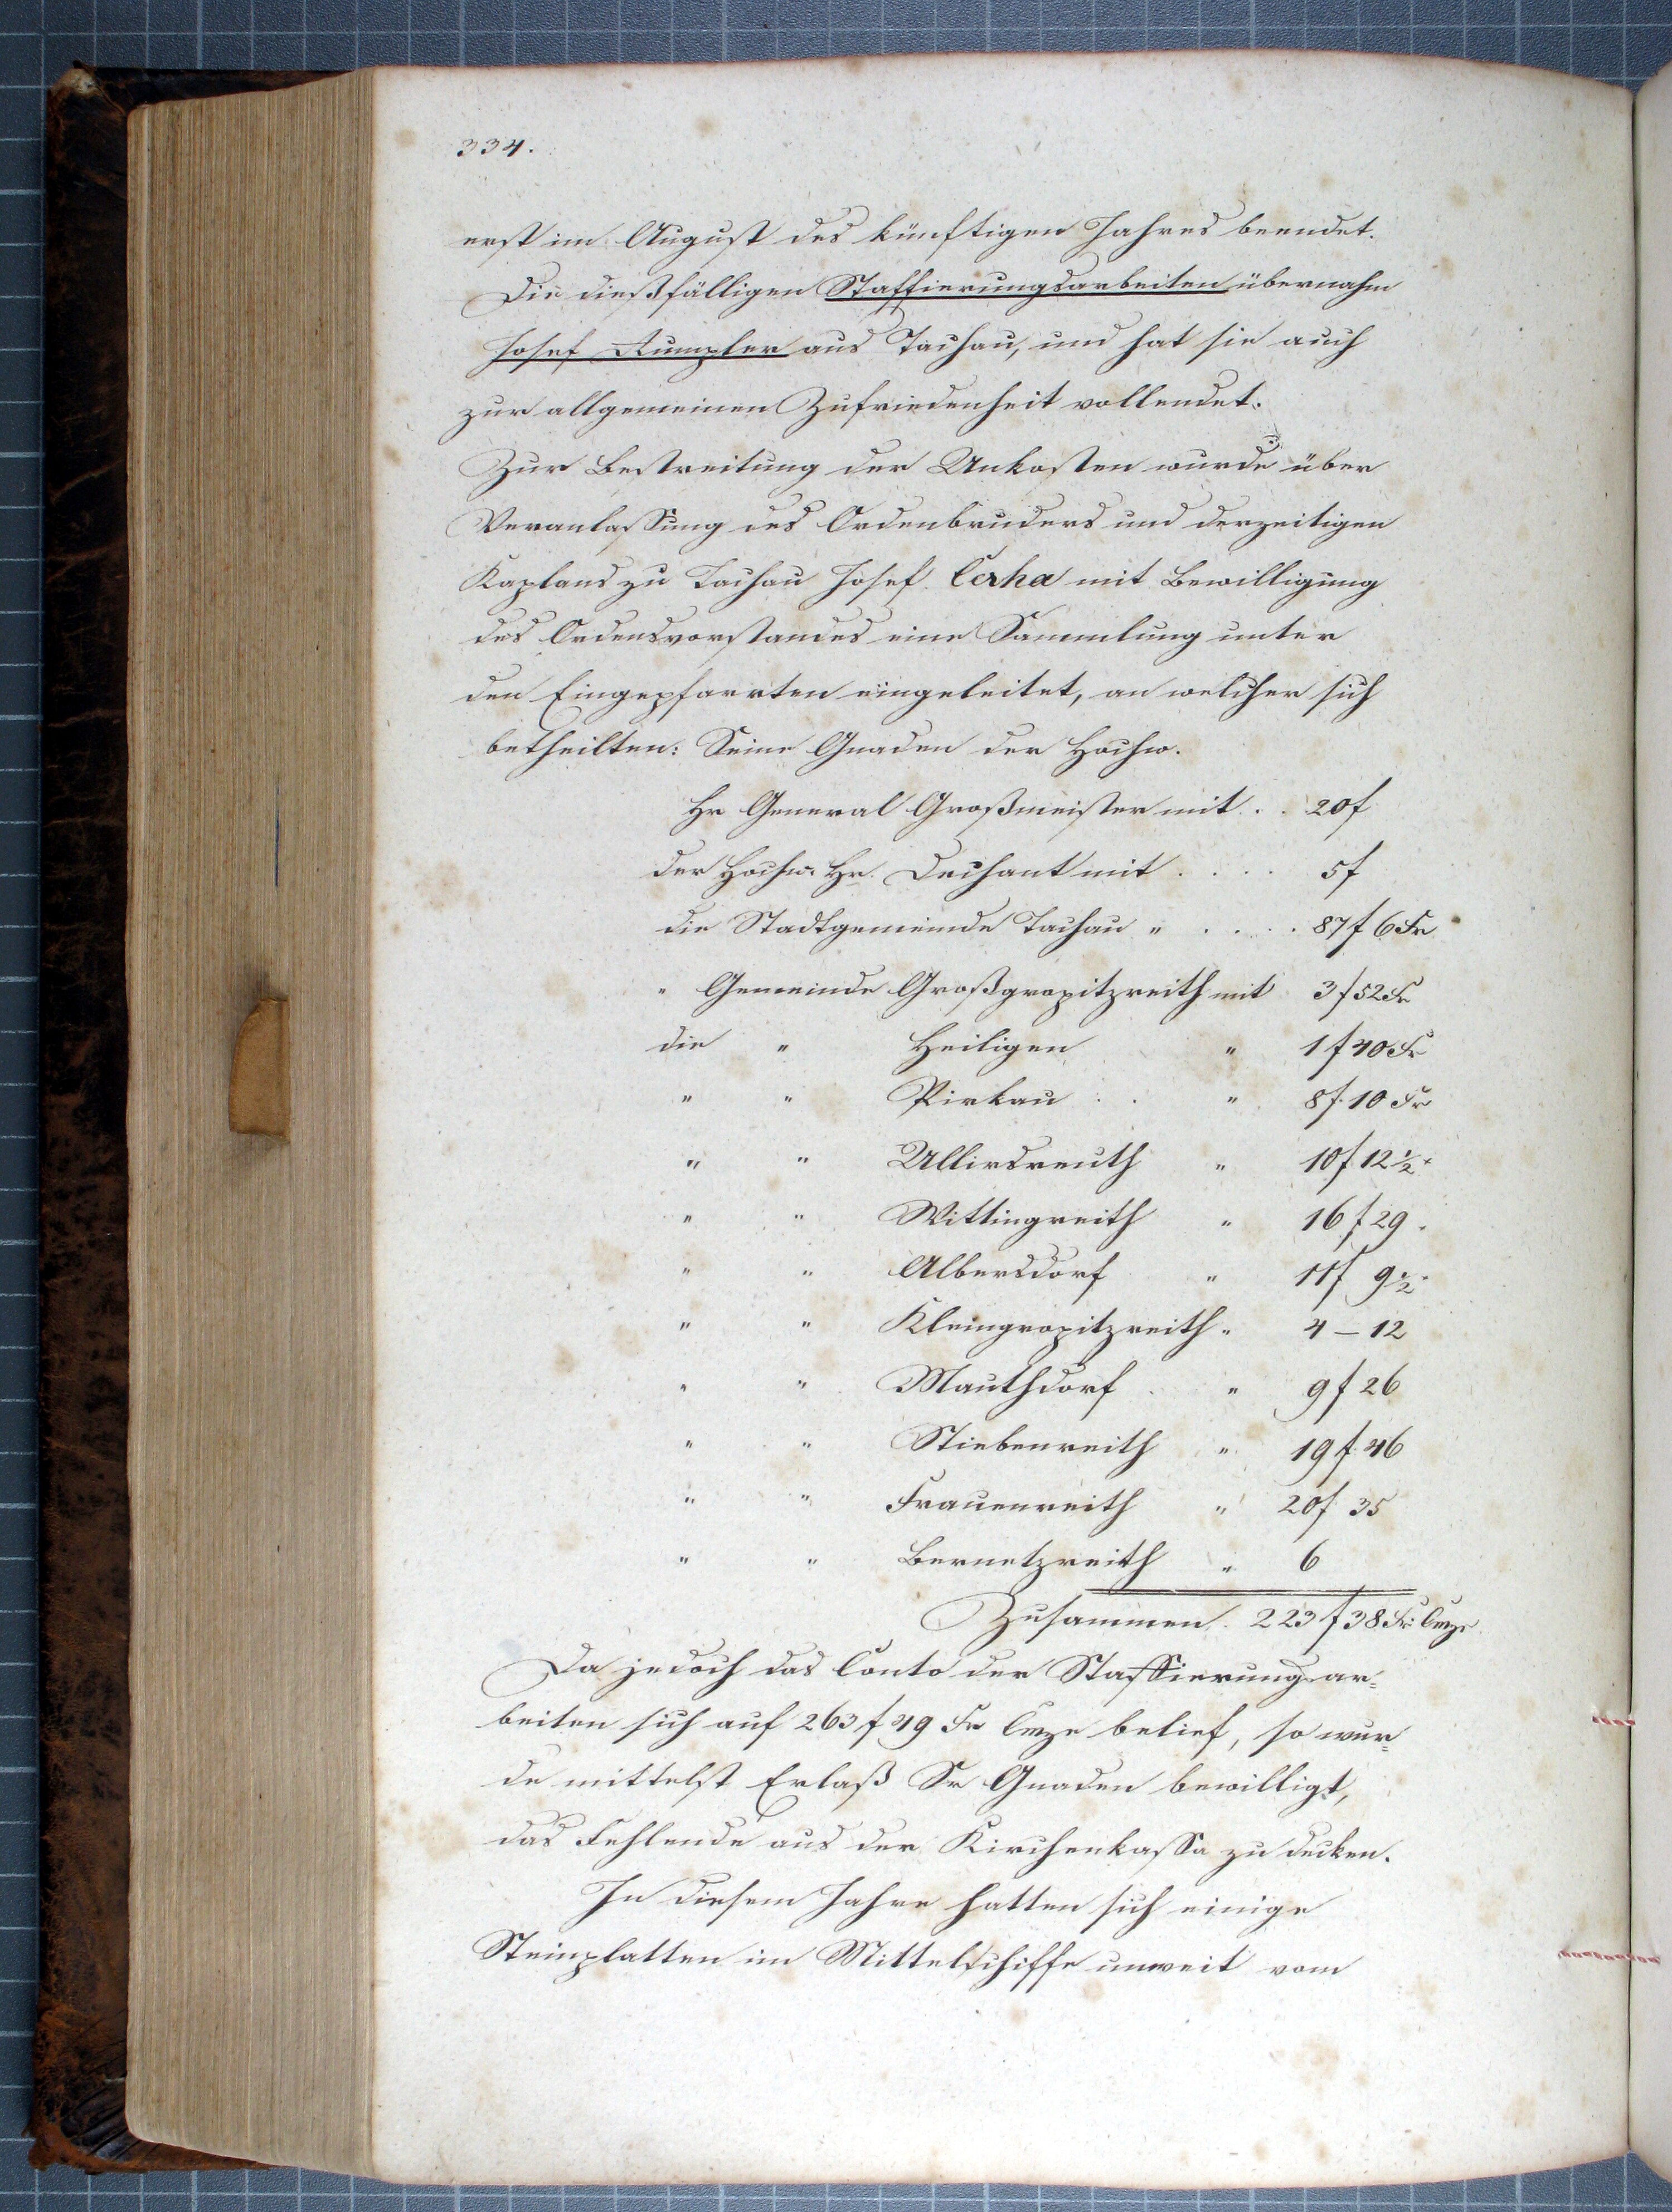 334.
erst im August des künftigen Jahres beendet.
Die dießfälligen Staffierungsarbeiten übernahm
Josef Rumpler aus Tachau, und hat sie auch
zur allgemeinen Zufriedenheit vollendet.
Zur Bestreitung der Unkosten wurde über
Veranlassung des Ordenbruders und derzeitigen
Kaplans zu Tachau Josef Cerha mit Bewilligung
des Ordensvorstandes eine Sammlung unter
den Eingepfarrten eingeleitet, an welcher sich
betheilten: Seine Gnaden der Hochw.
Hr General Großmeister mit . . 20f
der Hochw. Hr. Dechant mit . . . . 5f
die Stadtgemeinde Tachau " . . . . 87f 6Kr
" Gemeinde Großgropitzreith mit 3f 52Kr
die " Heiligen " 1f 40Kr
" " Pirkau . . " 8f. 10 Kr
" " Ullirsreuth " 10f 12½ "
" " Wittingreith " 16f 29 "
" " Albersdorf " 11f 9½ "
" " Kleingropitzreith " 4 – 12
" " Mauthdorf . " 9f 26
" " Stiebenreith " 19f. 46
" " Frauenreith " 20f 35
" " Bernetzreith " 6
Zusammen . 223f 38 Kr: Cmze
Da jedoch das Conto der Staffierungsar=
beiten sich auf 263f 49 Kr Cmze belief, so wur=
de mittelst Erlaß Sr Gnaden bewilligt,
das Fehlende aus der Kirchenkassa zu decken.
In diesem Jahre hatten sich einige
Steinplatten im Mittelschiffe unweit vom